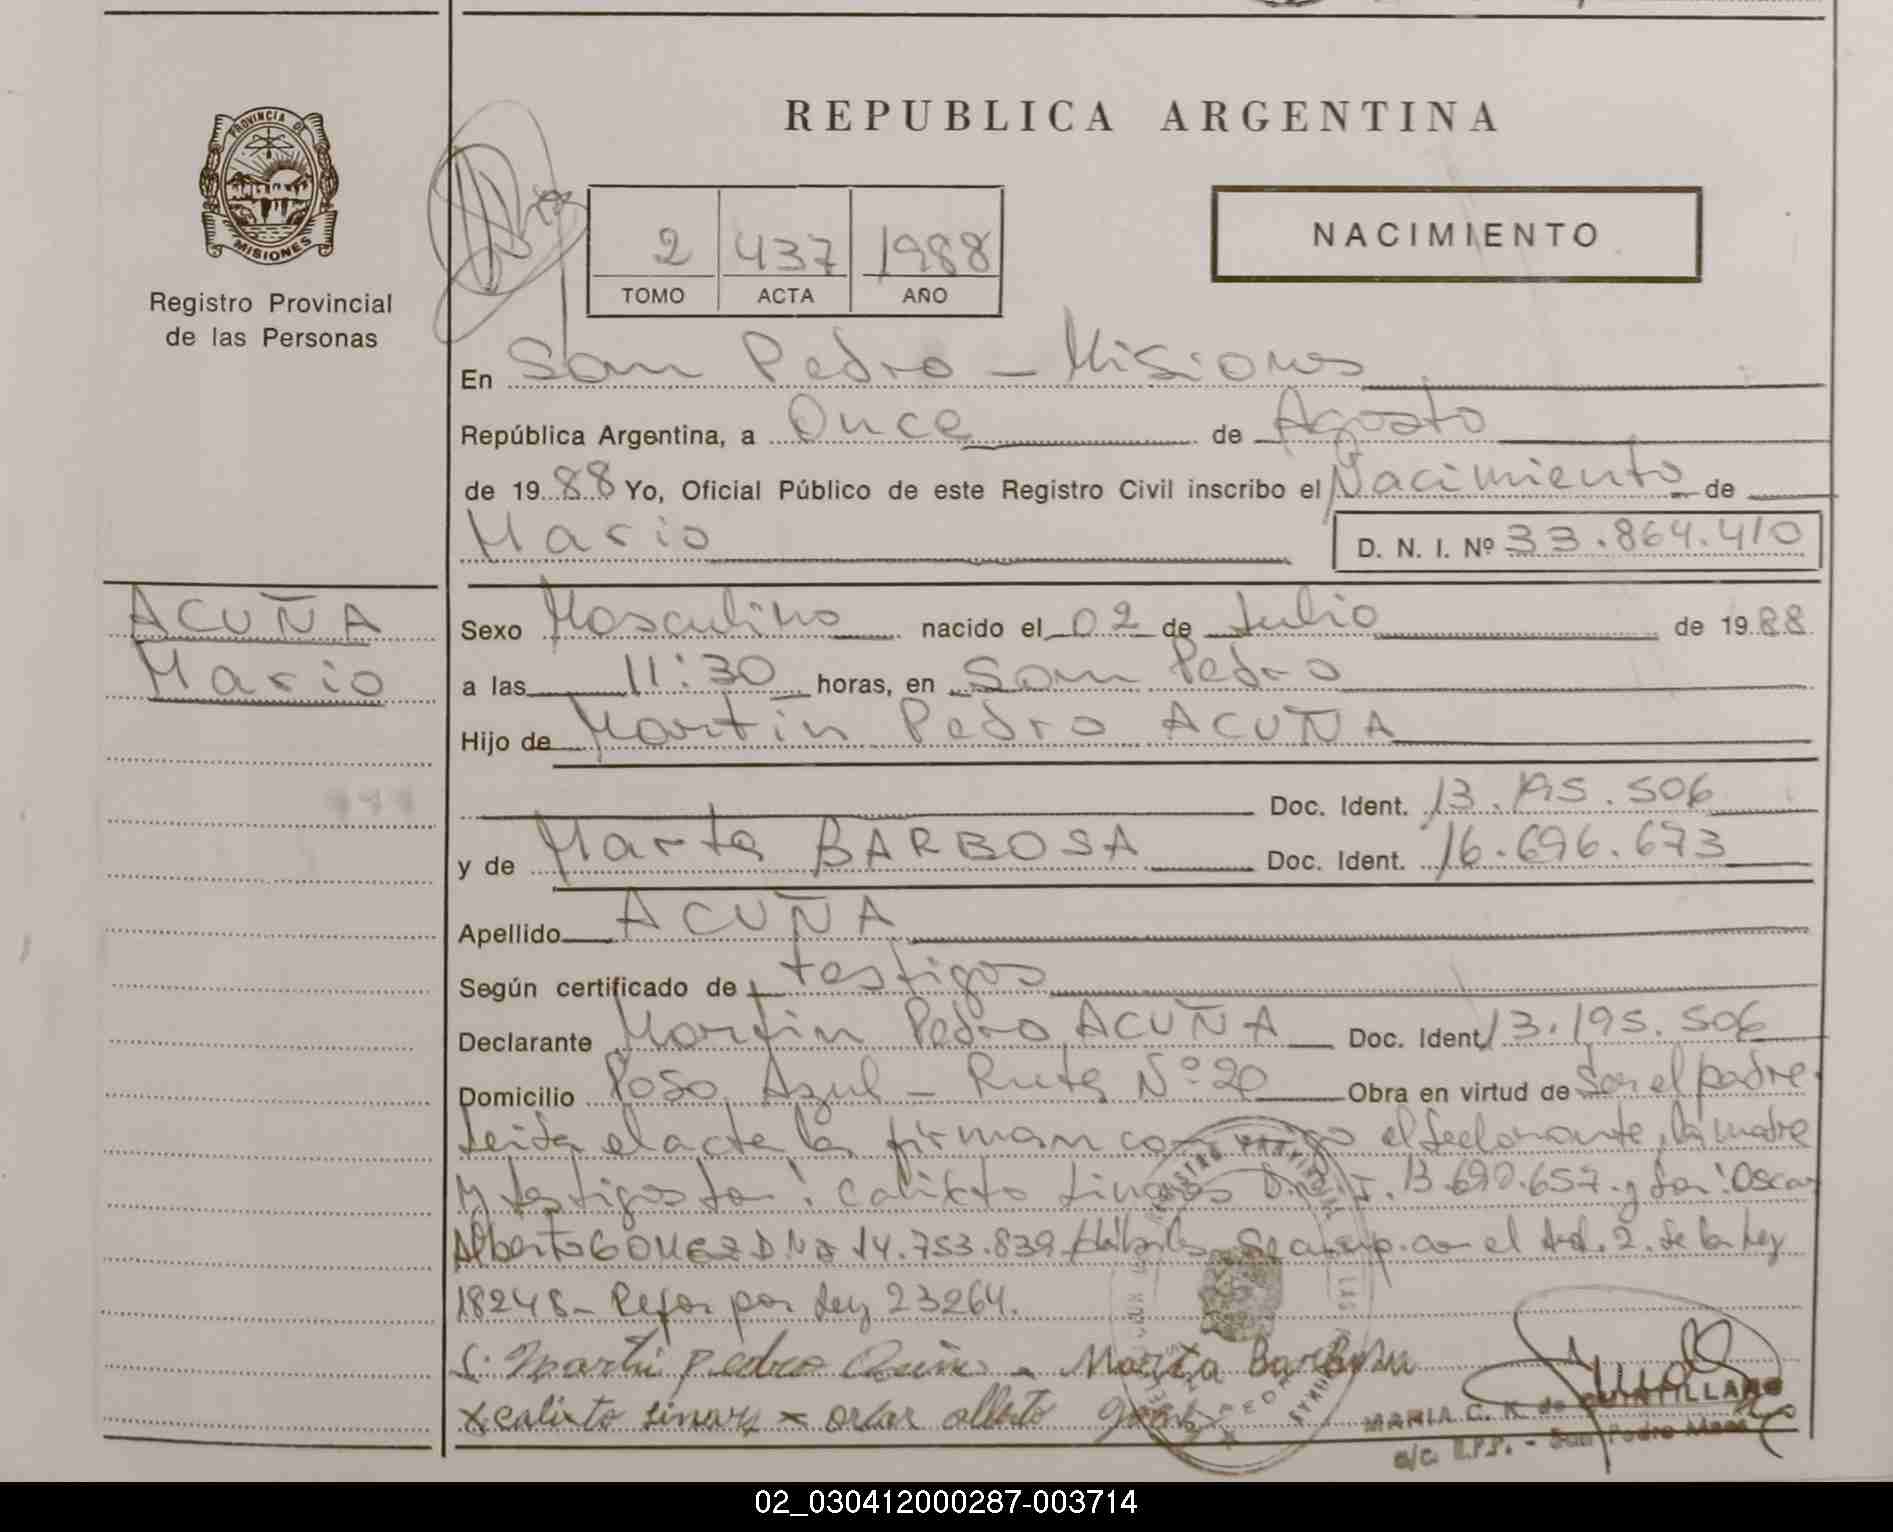 REPUBLICA ARGENTINA
PROVINCIA DE
MISIONES
Registro Provincial
de las Personas
2 437 1988
TOMO ACTA AÑO
NACIMIENTO
En San Pedro - Misiones
República Argentina, a Once de Agosto
de 1988 Yo, Oficial Público de este Registro Civil inscribo el Nacimiento de
Mario D. N. I. Nº 33.864.410
ACUÑA
Mario
Sexo Masculino nacido el 02 de Julio de 1988
a las 11:30 horas, en San Pedro
Hijo de Martín Pedro ACUÑA
Doc. Ident. 13.195.506
y de Marta BARBOSA Doc. Ident. 16.696.673
Apellido ACUÑA
Según certificado de testigos
Declarante Martín Pedro ACUÑA Doc. Ident. 13.195.506
Domicilio Poso Azul - Ruta Nº 20 Obra en virtud de Ser el padre.
Leida el acta la firman conmigo el declarante, la madre
y testigos Don: Calixto Linares D.N.I. 13.690.657 y Don: Oscar
Alberto GOMEZ DNI 14.753.839 Hábiles Se de acuerdo con el Art. 2 de la Ley
18248 - Refor por Ley 23264.
Martin pedro Acuña - Marta Barbosa
x calixto Linares x oscar alberto gomez
MARIA C. K. de QUINTILLANO
a/c. R.P.P. - San Pedro Mnes
02_030412000287-003714